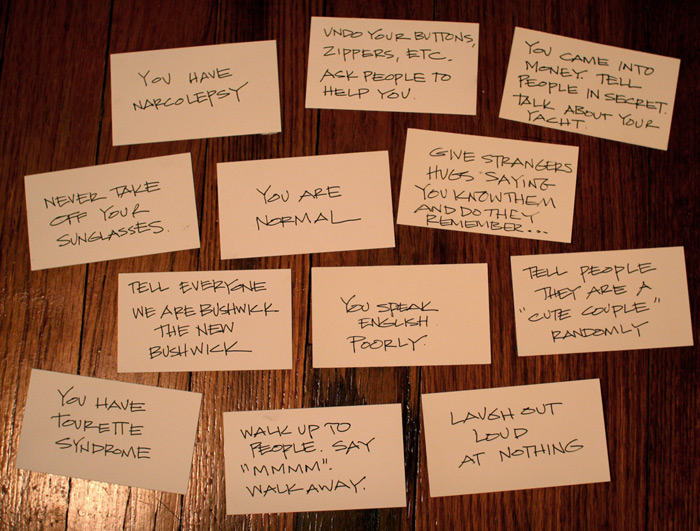 YOU HAVE
NARCOLEPSY
UNDO YOUR BUTTONS,
ZIPPERS, ETC.
ASK PEOPLE TO
HELP YOU.
YOU CAME INTO
MONEY. TELL
PEOPLE IN SECRET.
TALK ABOUT YOUR
YACHT.
NEVER TAKE
OFF YOUR
SUNGLASSES.
YOU ARE
NORMAL
GIVE STRANGERS
HUGS SAYING
YOU KNOW THEM
AND DO THEY
REMEMBER...
TELL EVERYONE
WE ARE BUSHWICK
THE NEW
BUSHWICK
YOU SPEAK
ENGLISH
POORLY.
TELL PEOPLE
THEY ARE A
"CUTE COUPLE"
RANDOMLY
YOU HAVE
TOURETTE
SYNDROME
WALK UP TO
PEOPLE. SAY
"MMMM".
WALK AWAY.
LAUGH OUT
LOUD
AT NOTHING